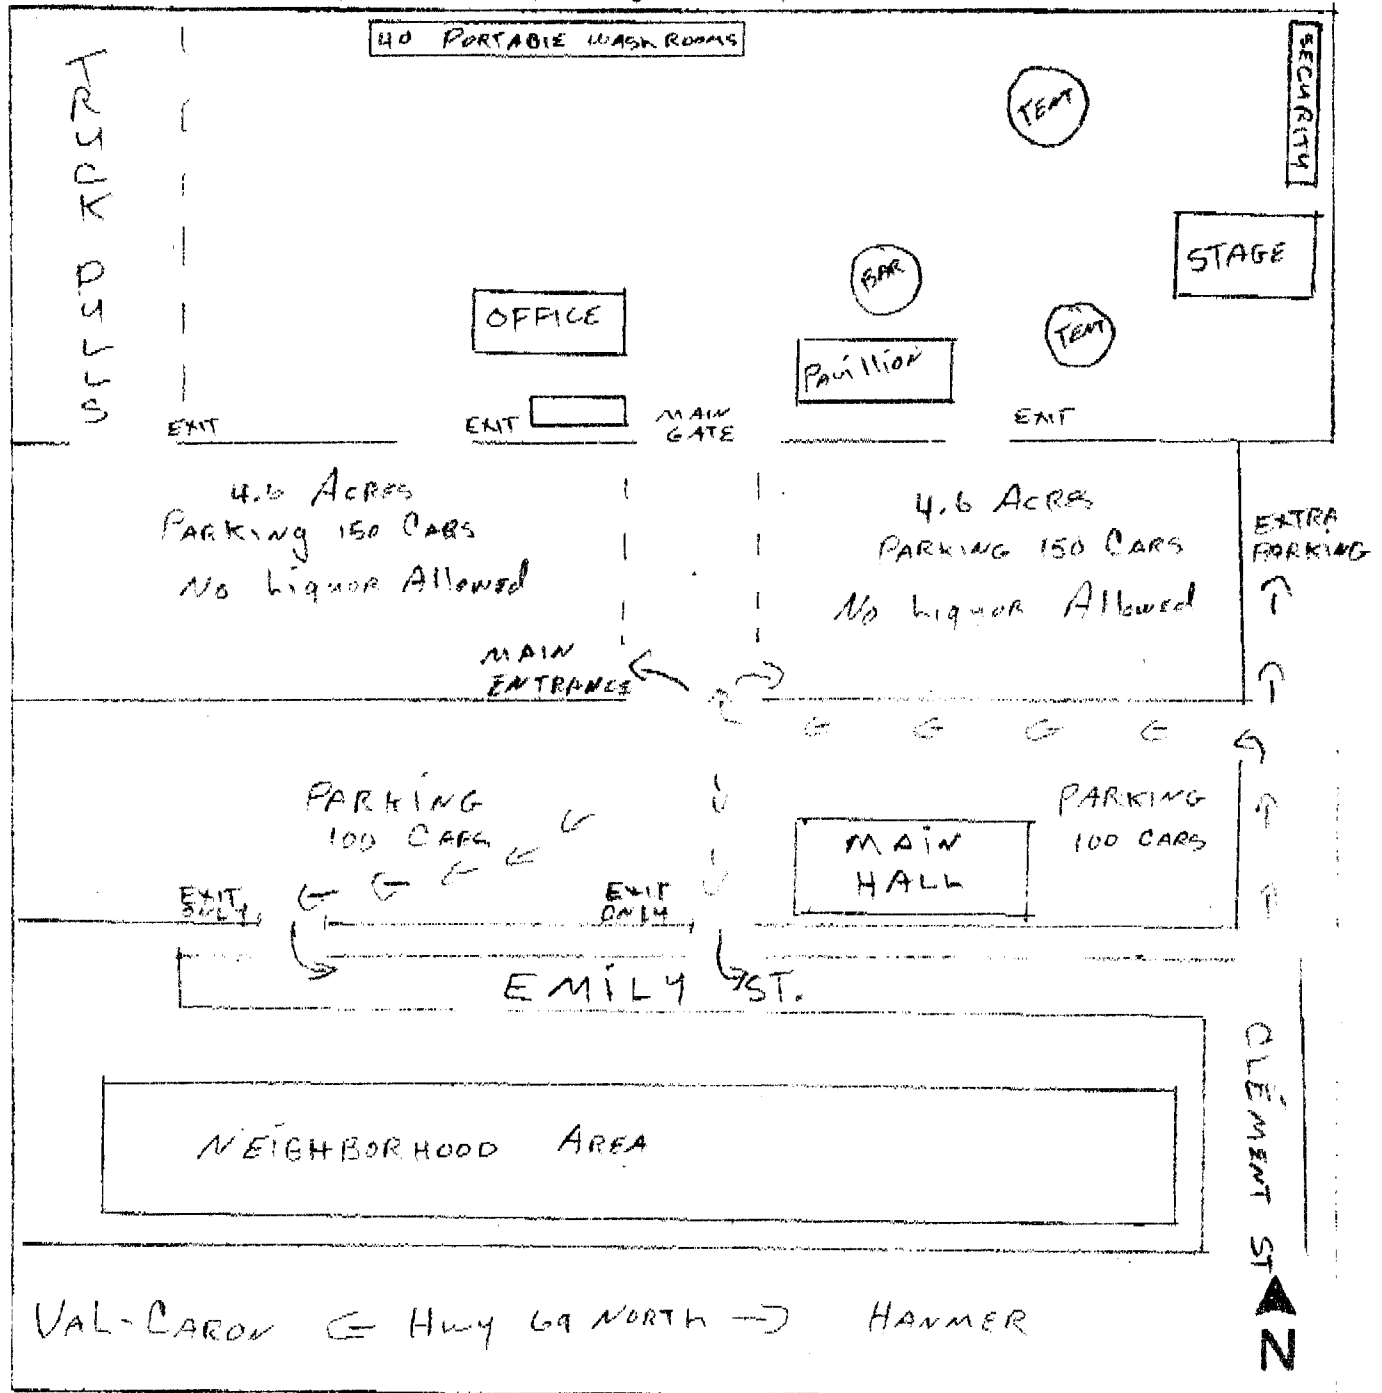 40 PORTABLE WASHROOMS
TRUCK PULLS
SECURITY
TENT
STAGE
BAR
OFFICE
TENT
Pavillion
EXIT
EXIT
MAIN
GATE
EXIT
4.6 Acres
PARKING 150 CARS
No Liquor Allowed
4.6 Acres
PARKING 150 CARS
No Liquor Allowed
EXTRA
PARKING
MAIN
ENTRANCE
PARKING
100 CARS
MAIN
HALL
PARKING
100 CARS
EXIT
ONLY
EXIT
ONLY
EMILY ST.
CLÉMENT ST
NEIGHBORHOOD AREA
VAL-CARON ← HWY 69 NORTH → HANMER
N